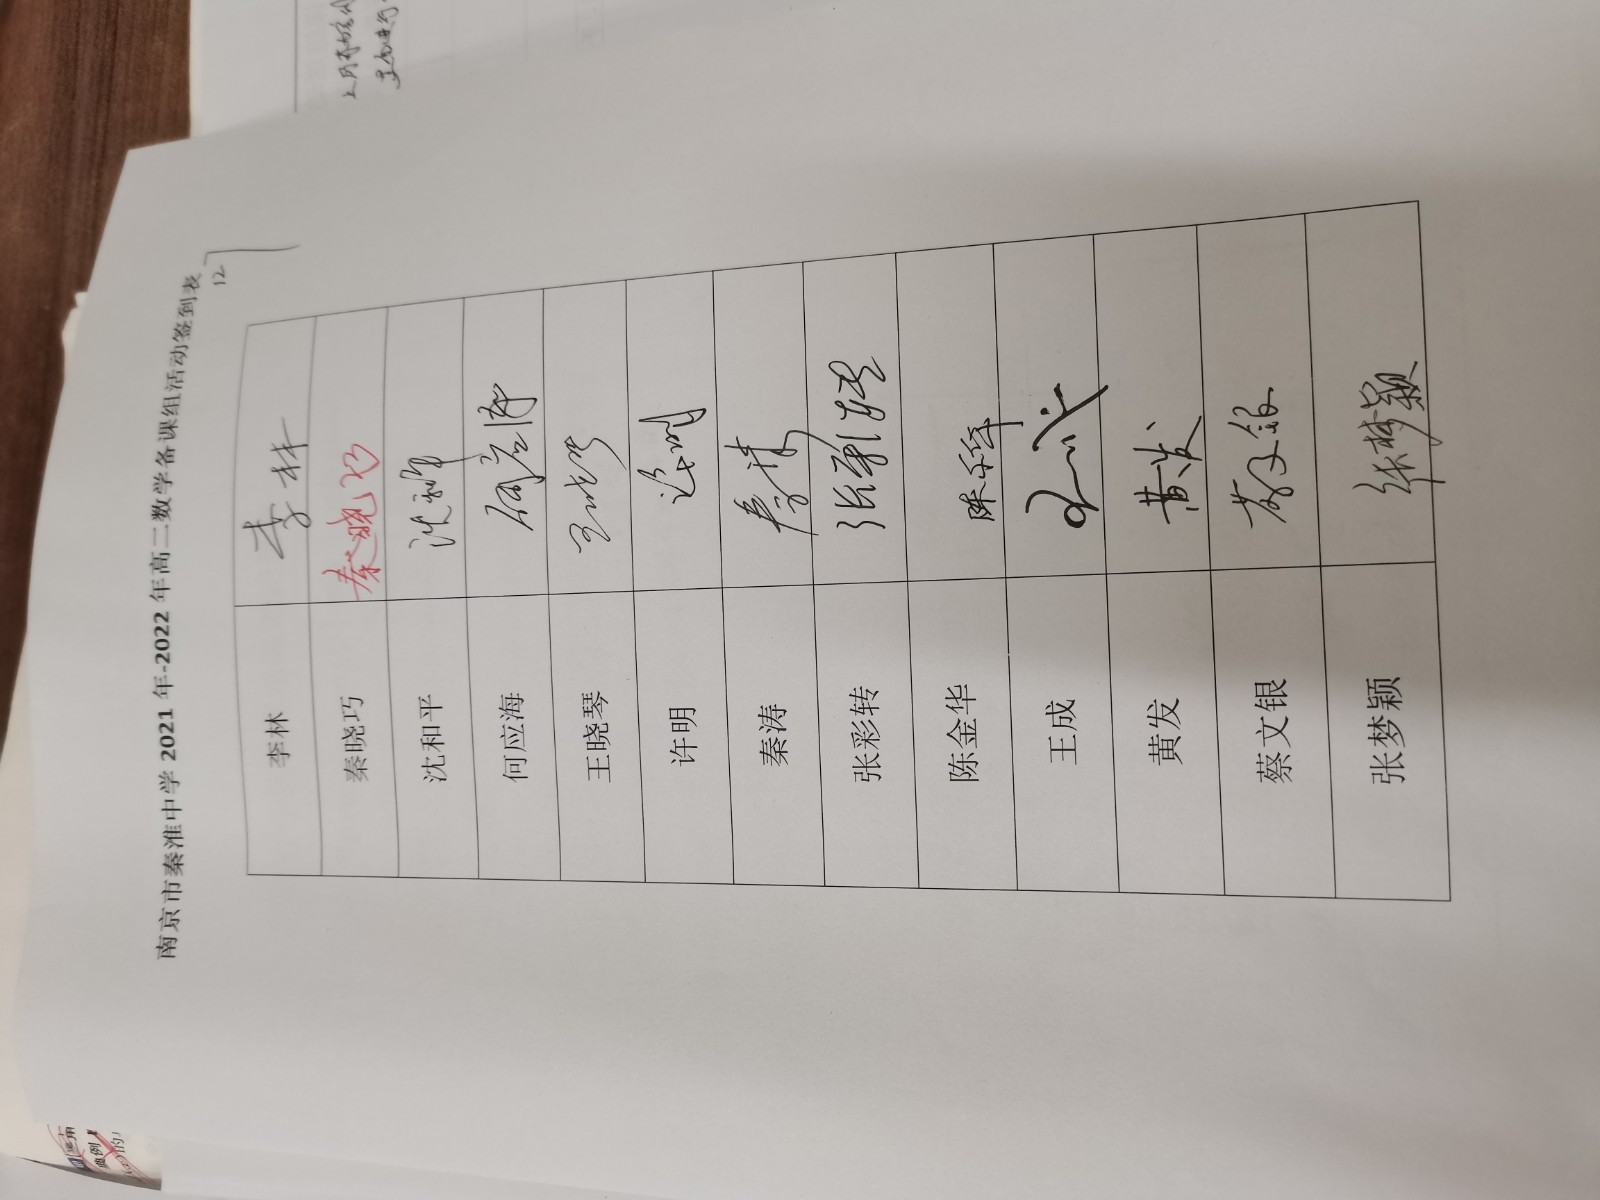 南京市秦淮中学 2021 年-2022 年高二数学备课组活动签到表
12
李林 李林
秦晓巧 秦晓巧
沈和平 沈和平
何应海 何应海
王晓琴 王晓琴
许明 许明
秦涛 秦涛
张彩转 张彩转
陈金华 陈金华
王成
黄发 黄发
蔡文银 蔡文银
张梦颖 张梦颖